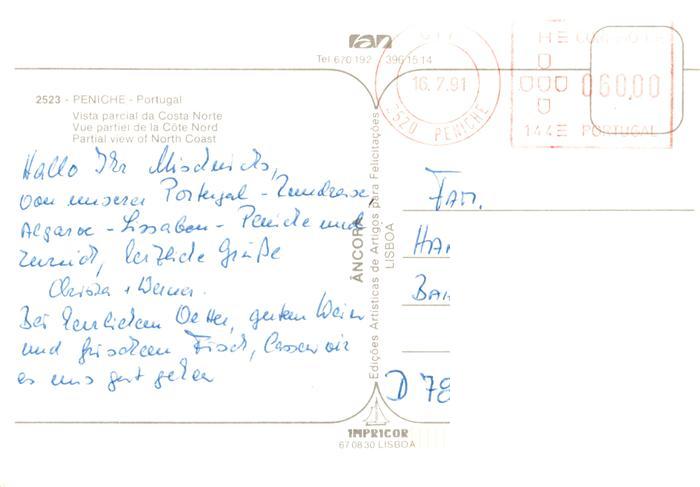 ran
Tel. 670192 396 15 14
2523 - PENICHE - Portugal
Vista parcial da Costa Norte
Vue partiel de la Côte Nord
Partial view of North Coast
Hallo Ihr
von unserer Portugal-Rundreise,
Algarve - Lissabon - Peniche und
zurück, herzliche Grüße
Christa + Werner.
Bei herrlichem Wetter, gutem Wein
und frischem Fisch, lassen wir
es uns gut gehen
ÂNCORA
Edições Artísticas de Artigos para Felicitações
LISBOA
IMPRICOR
670830 LISBOA
CTT
16.7.91
2520 PENICHE
060,00
144 PORTUGAL
FAM.
HA
BA
D 78